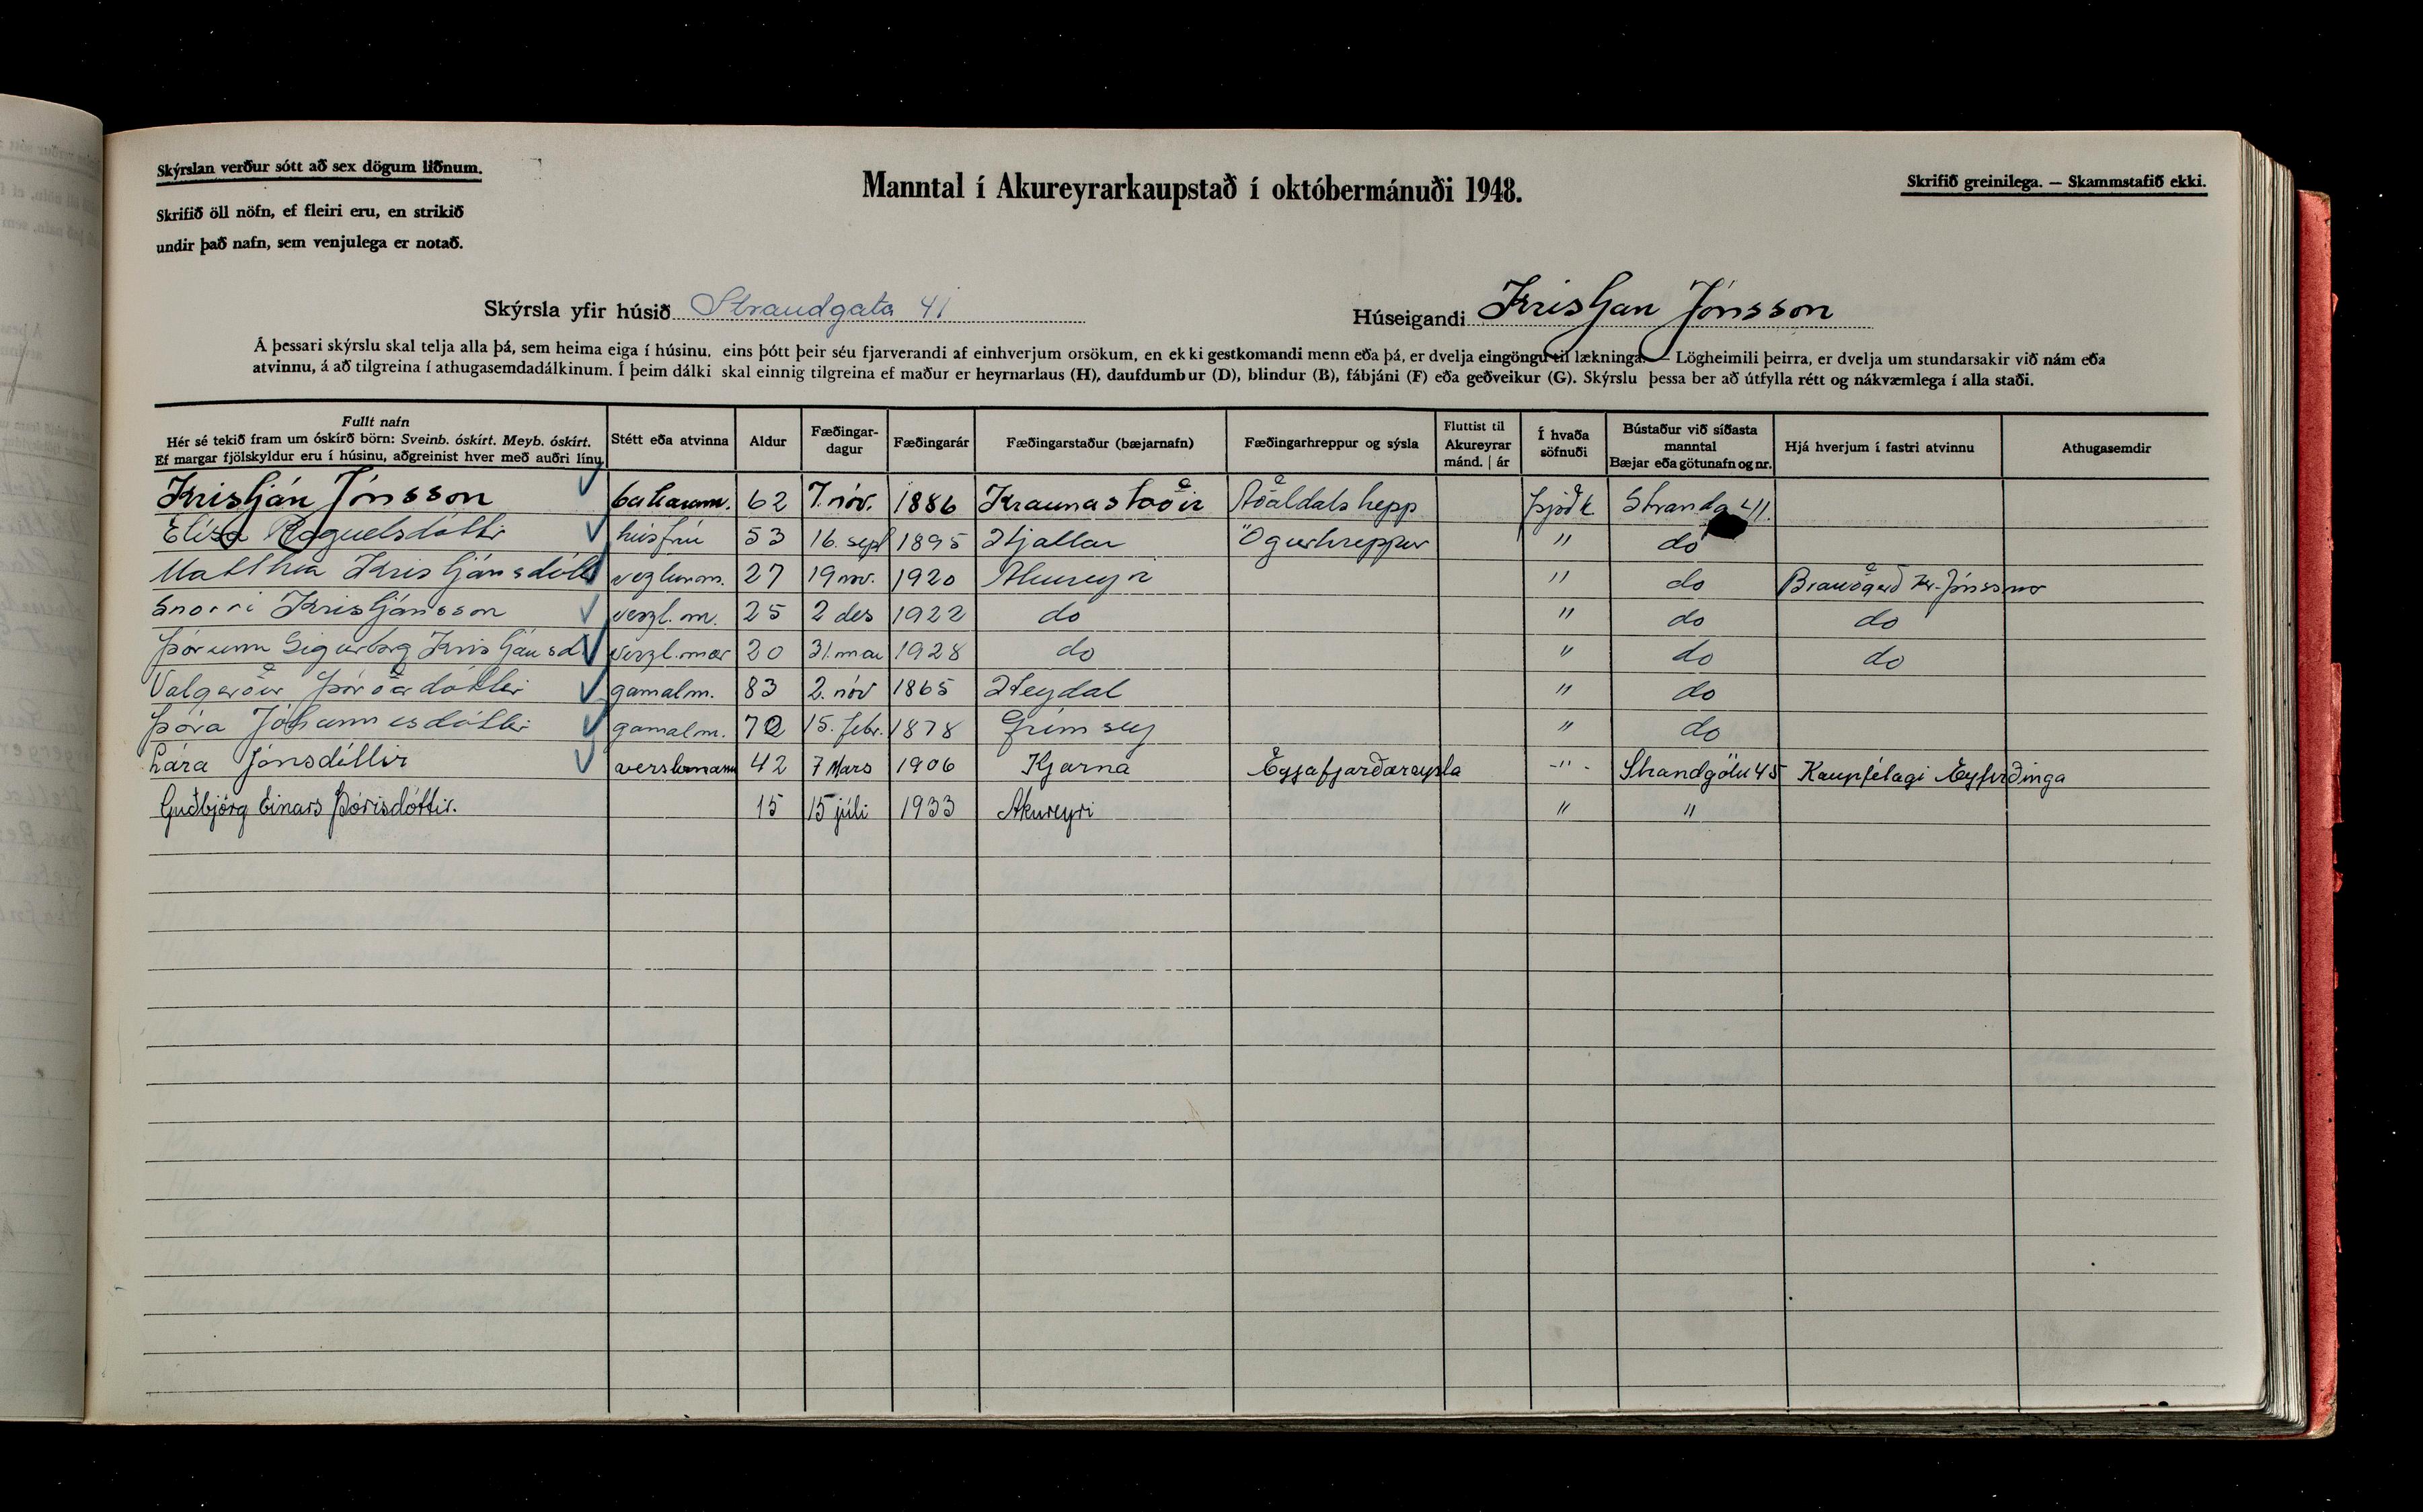 Skýrslan verður sótt að sex dögum liðnum.
Manntal í Akureyrarkaupstað í októbermánuði 1948.
Skrifið greinilega. — Skammstafið ekki.
Skrifið öll nöfn, ef fleiri eru, en strikið
undir það nafn, sem venjulega er notað.
Skýrsla yfir húsið Strandgata 41
Húseigandi Kristjan Jónsson
Á þessari skýrslu skal telja alla þá, sem heima eiga í húsinu, eins þótt þeir séu fjarverandi af einhverjum orsökum, en ekki gestkomandi menn eða þá, er dvelja eingöngu til lækninga. — Lögheimili þeirra, er dvelja um stundarsakir við nám eða
atvinnu, á að tilgreina í athugasemdadálkinum. Í þeim dálki skal einnig tilgreina ef maður er heyrnarlaus (H), daufdumbur (D), blindur (B), fábjáni (F) eða geðveikur (G). Skýrslu þessa ber að útfylla rétt og nákvæmlega í alla staði.
Fullt nafn
Hér sé tekið fram um óskírð börn: Sveinb. óskírt. Meyb. óskírt.
Ef margar fjölskyldur eru í húsinu, aðgreinist hver með auðri línu.
Stétt eða atvinna
Aldur
Fæðingar-
dagur
Fæðingarár
Fæðingarstaður (bæjarnafn)
Fæðingarhreppur og sýsla
Fluttist til
Akureyrar
mánd. | ár
Í hvaða
söfnuði
Bústaður við síðasta
manntal
Bæjar eða götunafn og nr.
Hjá hverjum í fastri atvinnu
Athugasemdir
Kristján Jónsson 62 7. nóv. 1886 Kraunastaðir Aðaldals hepp þjóðk Strandg 41.
Elísa Raguelsdóttir húsfrú 53 16. sept 1895 Hjallar Ögurhreppur " do
Matthea Kristjánsdótt 27 19 nov. 1920 Akureyri " do Brauðgerð Kr. Jónssonar
Snorri Kristjánsson verzl. m. 25 2 des 1922 do " do do
Þórunn Sigurborg Kristjánsd. verzl. mær 20 31. mai 1928 do " do do
Valgerður Þórðardóttir gamalm. 83 2. nóv 1865 Heydal " do
Þóra Jóhannesdóttir gamalm. 70 15. febr. 1878 Grímsey " do
Lára Jónsdóttir 42 7 Mars 1906 Kjarna Eyjafjarðarsýsla -"- Strandgötu 45 Kaupfélagi Eyfirðinga
Guðbjörg Einars Þórisdóttir. 15 15 júli 1933 Akureyri " "